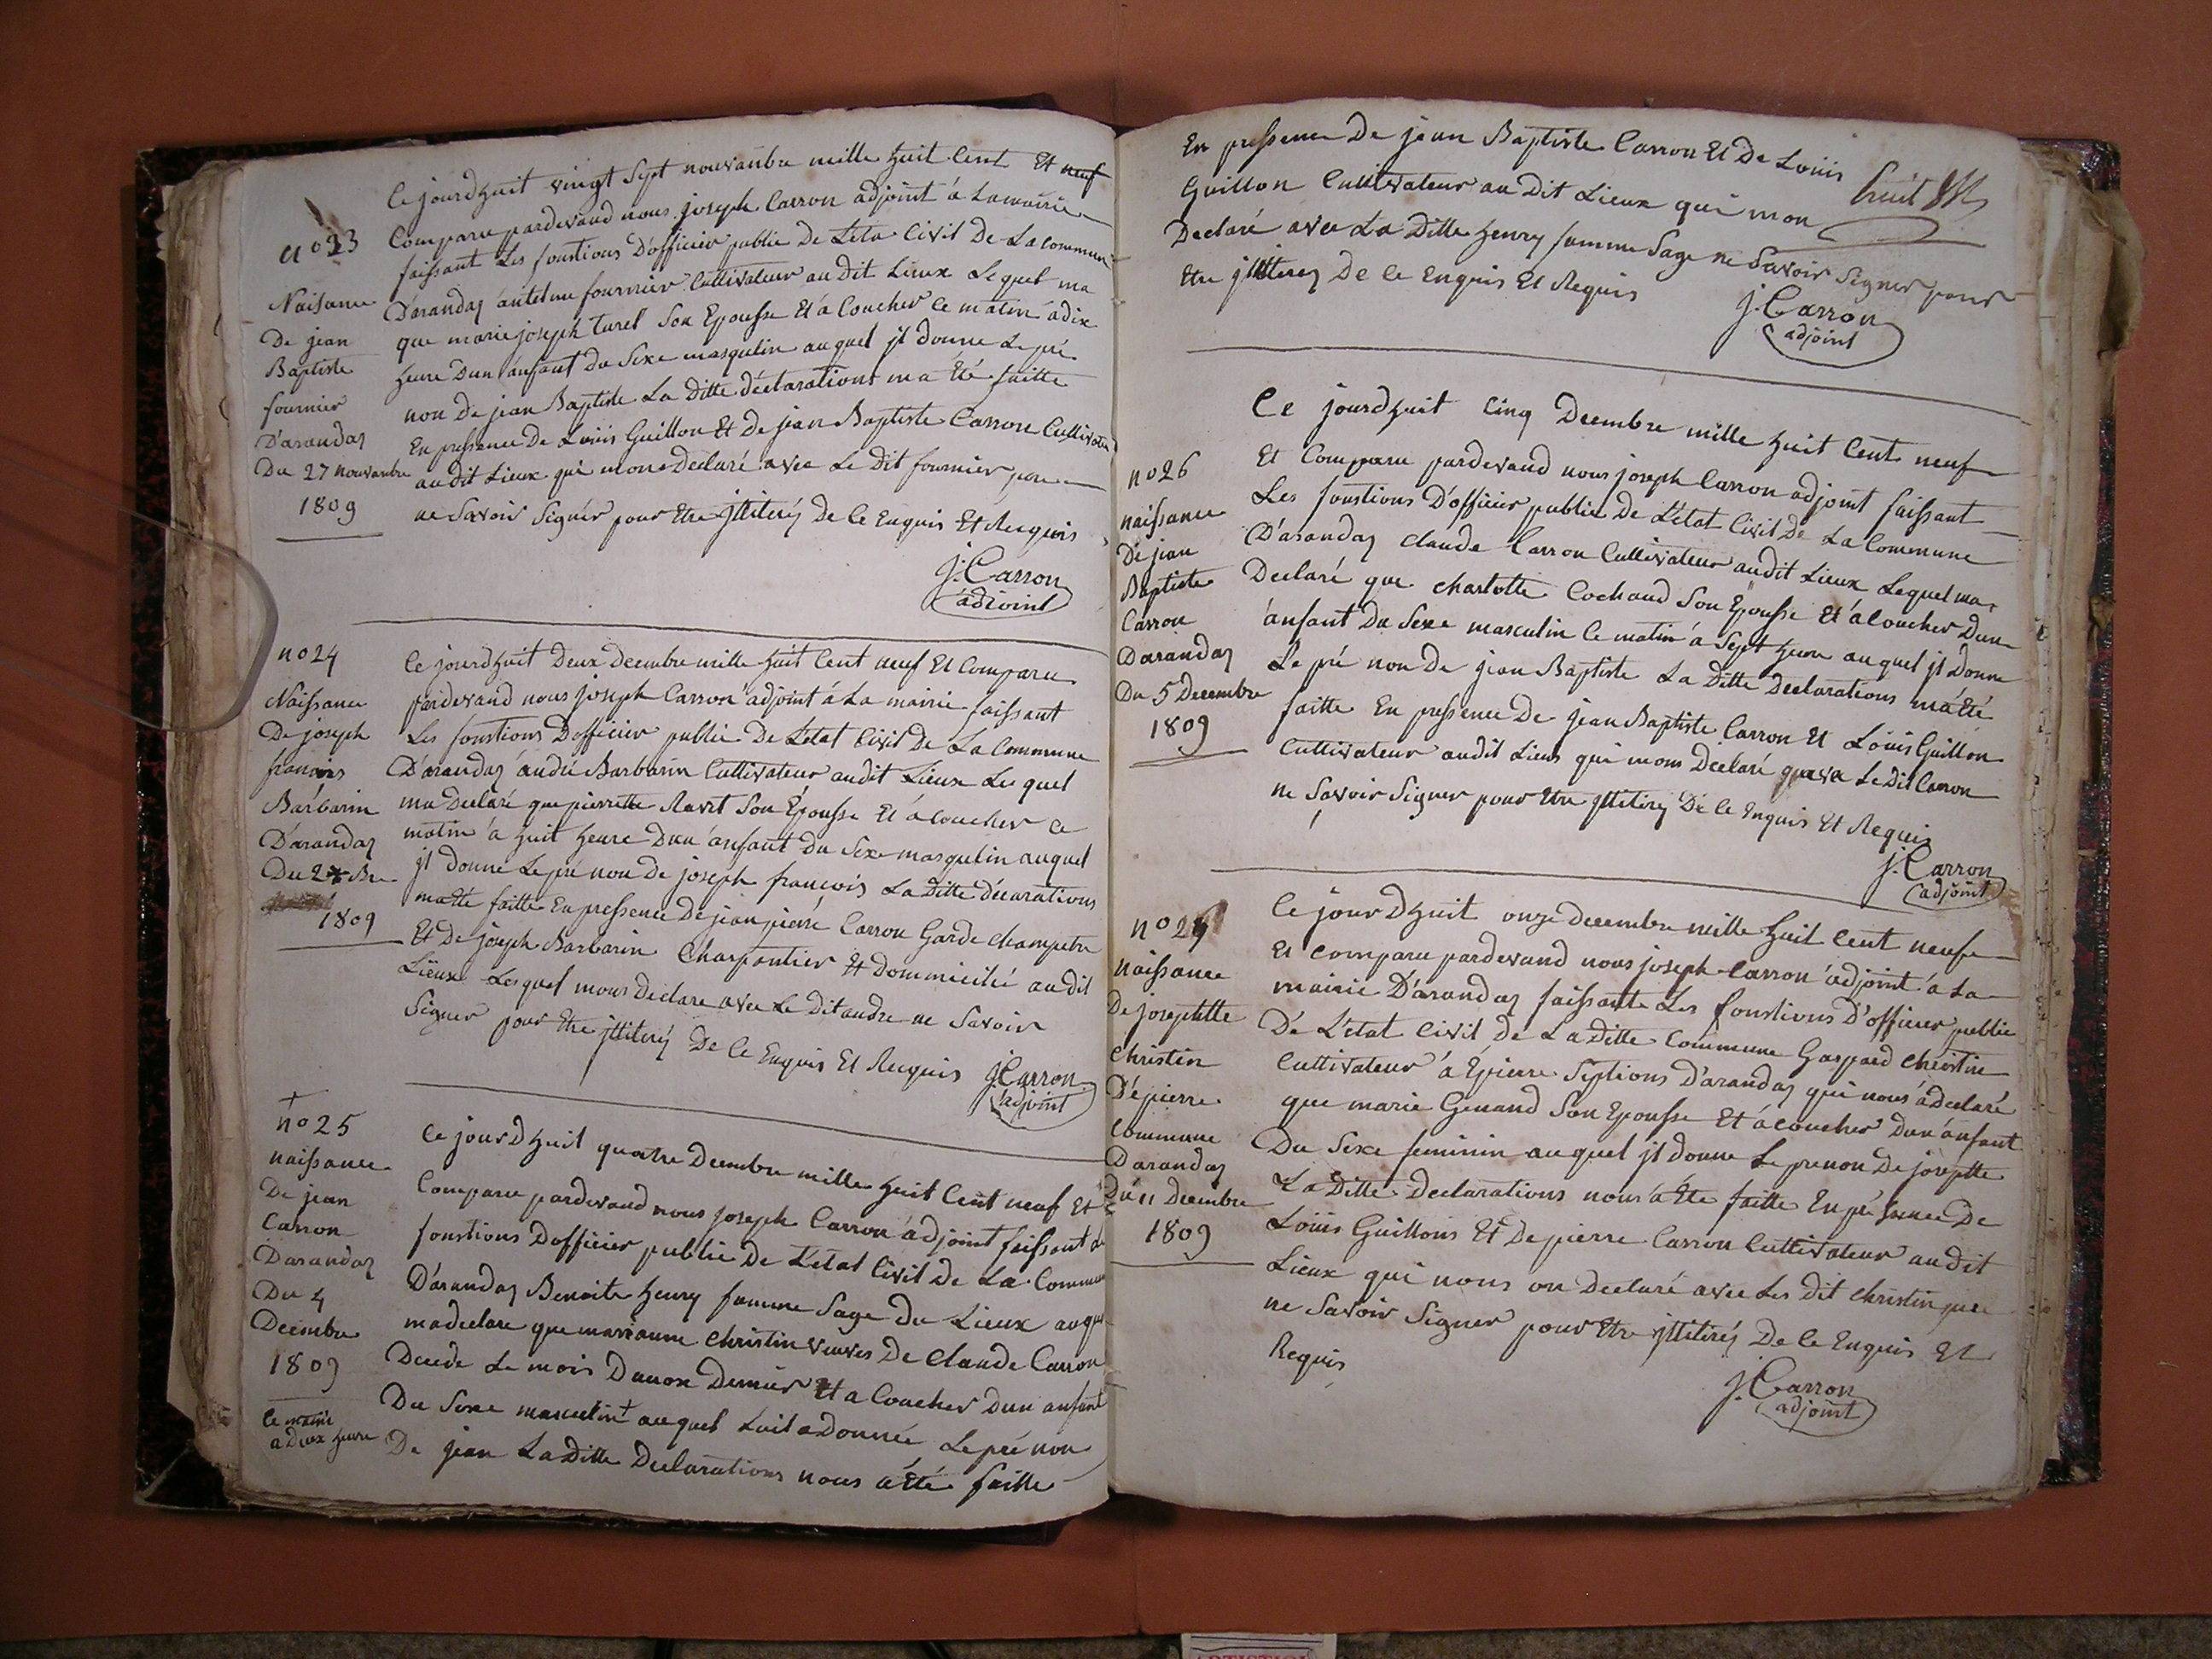 no 23
Naisance
De jean
Baptiste
fournier
D'arandas
Du 27 nouvanbre
1809
Ce jourdhuit vingt Sept nouvanbre mille huit Cent Et neuf
Comparu pardevand nous joseph Carron adjoint á La mairie
faissant Les fonstions D'officier public De Leta Civil De La commune
D'arandas antelme fournier Cultivateur au dit Lieux Le quel ma
que marie joseph turel Son Epousse Et á Coucher Ce matin á dix
heure Dun ánfant Du Sexe masqulin au quel jl donne Le pré
non De jean Baptiste La ditte déclarations ma Été faitte
En pressence De Louis Guillon Et De jean Baptiste Carron Cultivateur
au dit Lieux qui mon Declaré avec Le dit fournier
ne Savoir Signér pour Etre jtliteréz De Ce Enquis Et Requis
J. Carron
adjoint
no 24
Naissance
De joseph
francois
Barbarin
D'arandas
Du 2 Xbre
1809
Ce jourdhuit Deux Decembre mille huit Cent neuf Et Comparu
pardevand nous joseph Carron adjoint á La mairie faissant
Les fonstions Dofficier public De L'etat Civil De La Commune
D'arandas andré Barbarin Cultivateur au dit Lieux Le quel
ma Declaré que pierrette Ravet Son Épousse Et á Coucher Ce
matin á huit heure Dun ánfant Du Sexe masqulin auquel
jl donne Le pré non De joseph francois La ditte décarations
ma Été faitte En pressence De jean pierre Carron Garde champetre
Et De joseph Barbarin Charpantier Et Dommicilié au dit
Lieux Lesquel mons Declare avec Le Dit andre ne Savoir
Signer pour Etre jtliteréz De Ce Enquis Et Requis
J. Carron
adjoint
+
no 25
naissance
De jean
Carron
Darandas
Du 4
Decembre
1809
Ce matin
a Deux heure
Ce jourdhuit quatre Decembre mille huit Cent neuf Et
Comparu pardevand nous joseph Carron ádjoint faissant
fonstions Dofficier public De L'etat Civil De La Commune
D'arandas Benoite henry famme Sage Du Lieux
ma declare que marianne Christin veuves De Claude Carron
Decede Le mois Dernier Et a Coucher Dun anfant
Du Sexe masculin + auquel a Donnée Le pré non
De jean La Ditte Declarations nous á Été faitte
En pressence De jean Baptiste Carron Et De Louis
Guillon Cultivateur au Dit Lieux qui mon
Declaré avec La Ditte henry famme Sage ne Savoir Signer pour
Etre jtliterez De Ce Enquis Et Requis
J. Carron
adjoint
no 26
naissance
De jean
Baptiste
Carron
Darandas
Du 5 Decembre
1809
Ce jourdhuit Cinq Decembre mille huit Cent neuf
Et Comparu pardevand nous joseph Carron adjoint faissant
Les fonstions D'officier public De L'etat Civil De La Commune
D'arandas Claude Carron Cultivateur au dit Lieux Lequel ma
Declaré que charlotte Cochaud Son Épousse Et á Coucher Dun
ánfant Du Sexe masculin Ce matin á Sept heure auquel jl donne
Le pré non De jean Baptiste La Ditte Declarations má Été
faitte En pressence De jean Baptiste Carron Et Louis Guillon
Cultivateur audit Lieux qui mons Declaré Le Dit Carron
ne Savoir Signer pour Etre jtlitirez De Ce Enquis Et Requis
J. Carron
adjoint
no 27
naissance
De josephtte
Christin
D'épierre
Commune
Darandas
Du 11 Decembre
1809
Ce jourdhuit onze Decembre mille huit Cent neuf
Et Comparu pardevand nous joseph Carron ádjoint á La
mairie D'arandas faissante Les fonstions D'officier public
De L'etat Civil De La Ditte Commune Gaspard Christin
Cultivateur á Épierre Septions D'arandas qui nous á declaré
que marie Genand Son Epousse Et á Coucher Dun ánfant
Du Sexe feminin auquel jl Donne Le prenon De joseptte
La Ditte Declarations nous á Ete faitte En présence De
Louis Guillons Et De pierre Carron Cultivateur au dit
Lieux qui nous on Declaré avec Les Dit christin
ne Savoir Signer pour Etre jtlitiréz De Ce Enquis Et
Requis
J. Carron
adjoint